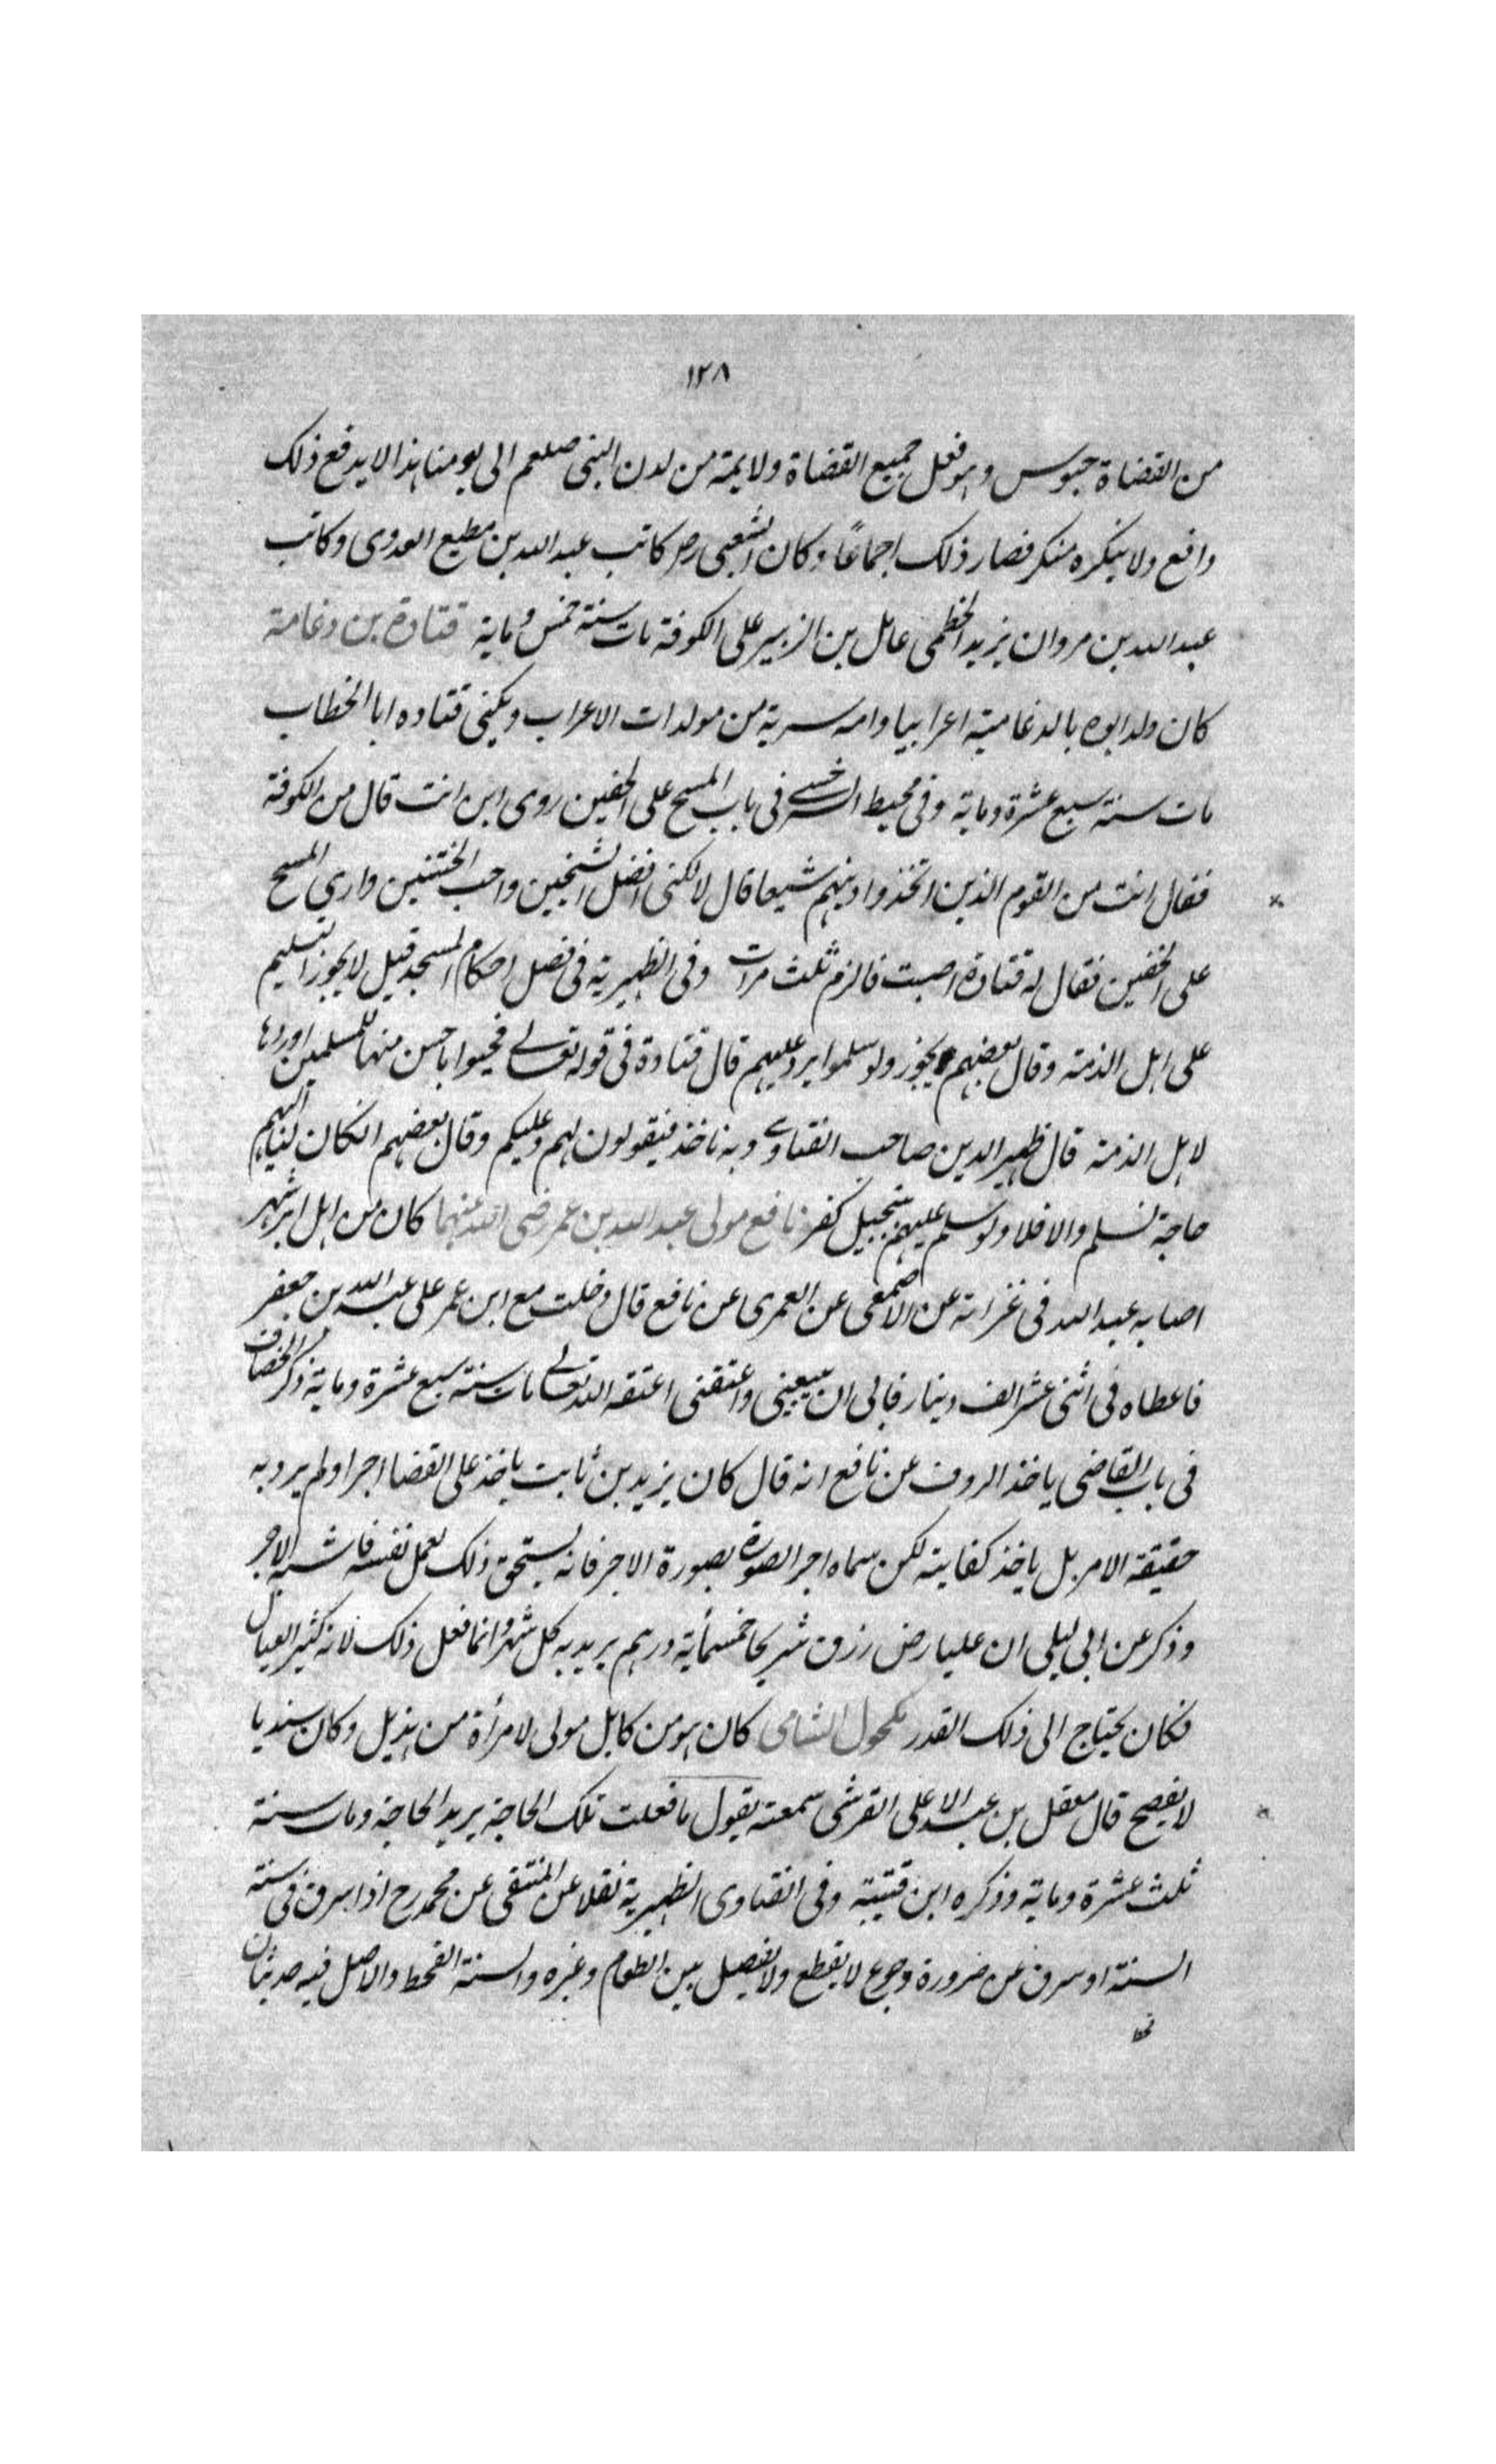 ١٢٨
من القضاة حبوس وهو فعل جميع القضاة ولايمة من لدن النبى صلعم الى يومنا هذا لا يدفع ذلك
دافع ولا ينكره منكر فصار ذلك اجماعًا وكان الشعبى رحـ كاتب عبد الله بن مطيع العدوى وكاتب
عبد الله بن مروان يزيد الخطمى عامل بن الزبير على الكوفة مات سنة خمس وماية قتادة بن دعامة
كان ولد ابوه بالدعامية اعرابيا وامه سرية من مولدات الاعراب ويكنى قتاده ابا الخطاب
مات سنة سبع عشرة وماية وفى محيط السرخسے فى باب المسح على الخفين روى ابن انت قال من الكوفة
فقال انت من القوم الذين اتخذوا دينهم شيعا قال لا لكنى افضل الشيخين واحب الختنين وارى المسح
على الخفين فقال له قتادة اصبت فالزم ثلث مرات وفى الظهيرية فى فصل احكام المسجد قيل لا يجوز التسليم
على اهل الذمة وقال بعضهم يجوز ولو سلموا يرد عليهم قال قتادة فى قوله تعالے فحيوا باحسن منها للمسلمين او ردها
لاهل الذمة قال ظهير الدين صاحب الفتاوے وبه ناخذ فيقولون لهم وعليكم وقال بعضهم انكان لنا اليهم
حاجة نسلم والا فلا ولو سلم عليهم بتبجيل كفر نافع مولى عبد الله بن عمر رضى الله عنهما كان من اهل ابرشهر
اصابه عبد الله فى غزاته عن الاصمعى عن العمرى عن نافع قال دخلت مع ابن عمر على عبد الله بن جعفر
فاعطاه فى اثنى عشر الف دينار فابى ان يبيعنى واعتقنى اعتقه الله تعالى مات سنة سبع عشرة وماية ذكر الخصاف
فى باب القاضى ياخذ الرزق عن نافع انه قال كان يزيد بن ثابت ياخذ على القضا اجرا ولم يرد به
حقيقة الامر بل ياخذ كفايته لكن سماه اجر الصورة بصورة الاجر فانه يستحق ذلك بعمل نفسه فاشبه الاجر
وذكر عن ابى ليلى ان عليا رض رزق شريحا خمسمأية درهم يريد به كل شهر وانما فعل ذلك لانه كثير العيال
فكان يحتاج الى ذلك القدر مكحول الشامى كان هو من كابل مولى لامرأة من هذيل وكان سنديا
لا يفصح قال معقل بن عبد الاعلى القرشى سمعته يقول ما فعلت تلك الحاجة يريد الحاجة ومات سنة
ثلث عشرة وماية وذكره ابن قتيبة وفى الفتاوى الظهيرية نقلا عن المنتقى عن محمد رح اذا سرق فى سنة
السنة او سرق عن ضرورة وجوع لا يقطع ولا يفصل بين الطعام وغيره والسنة القحط والاصل فيه حديثان